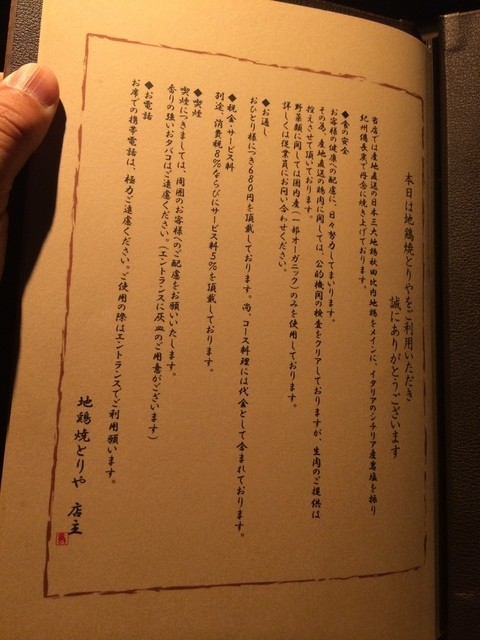 本日は地鶏焼とりやをご利用いただき
誠にありがとうございます
当店では産地直送の日本三大地鶏秋田比内地鶏をメインに、イタリアのシチリア産岩塩を振り
紀州備長炭で丹念に焼き上げております。
◆食の安全
お客様の健康への配慮に、日々努力してまいります。
その為、産地直送の鶏肉に関しては、公的機関の検査をクリアしておりますが、生肉のご提供は
控えさせて頂いております。
野菜類に関しては国内産(一部オーガニック)のみを使用しております。
詳しくは従業員にお問い合わせください。
◆お通し
おひとり様につき680円を頂戴しております。尚、コース料理には代金として含まれております。
◆税金・サービス料
別途、消費税8%ならびにサービス料5%を頂戴しております。
◆喫煙
喫煙につきましては、周囲のお客様へのご配慮をお願いいたします。
香りの強いおタバコはご遠慮ください。(エントランスに灰皿のご用意がございます)
◆お電話
お席での携帯電話は、極力ご遠慮ください。ご使用の際はエントランスでご利用願います。
地鶏焼とりや 店主